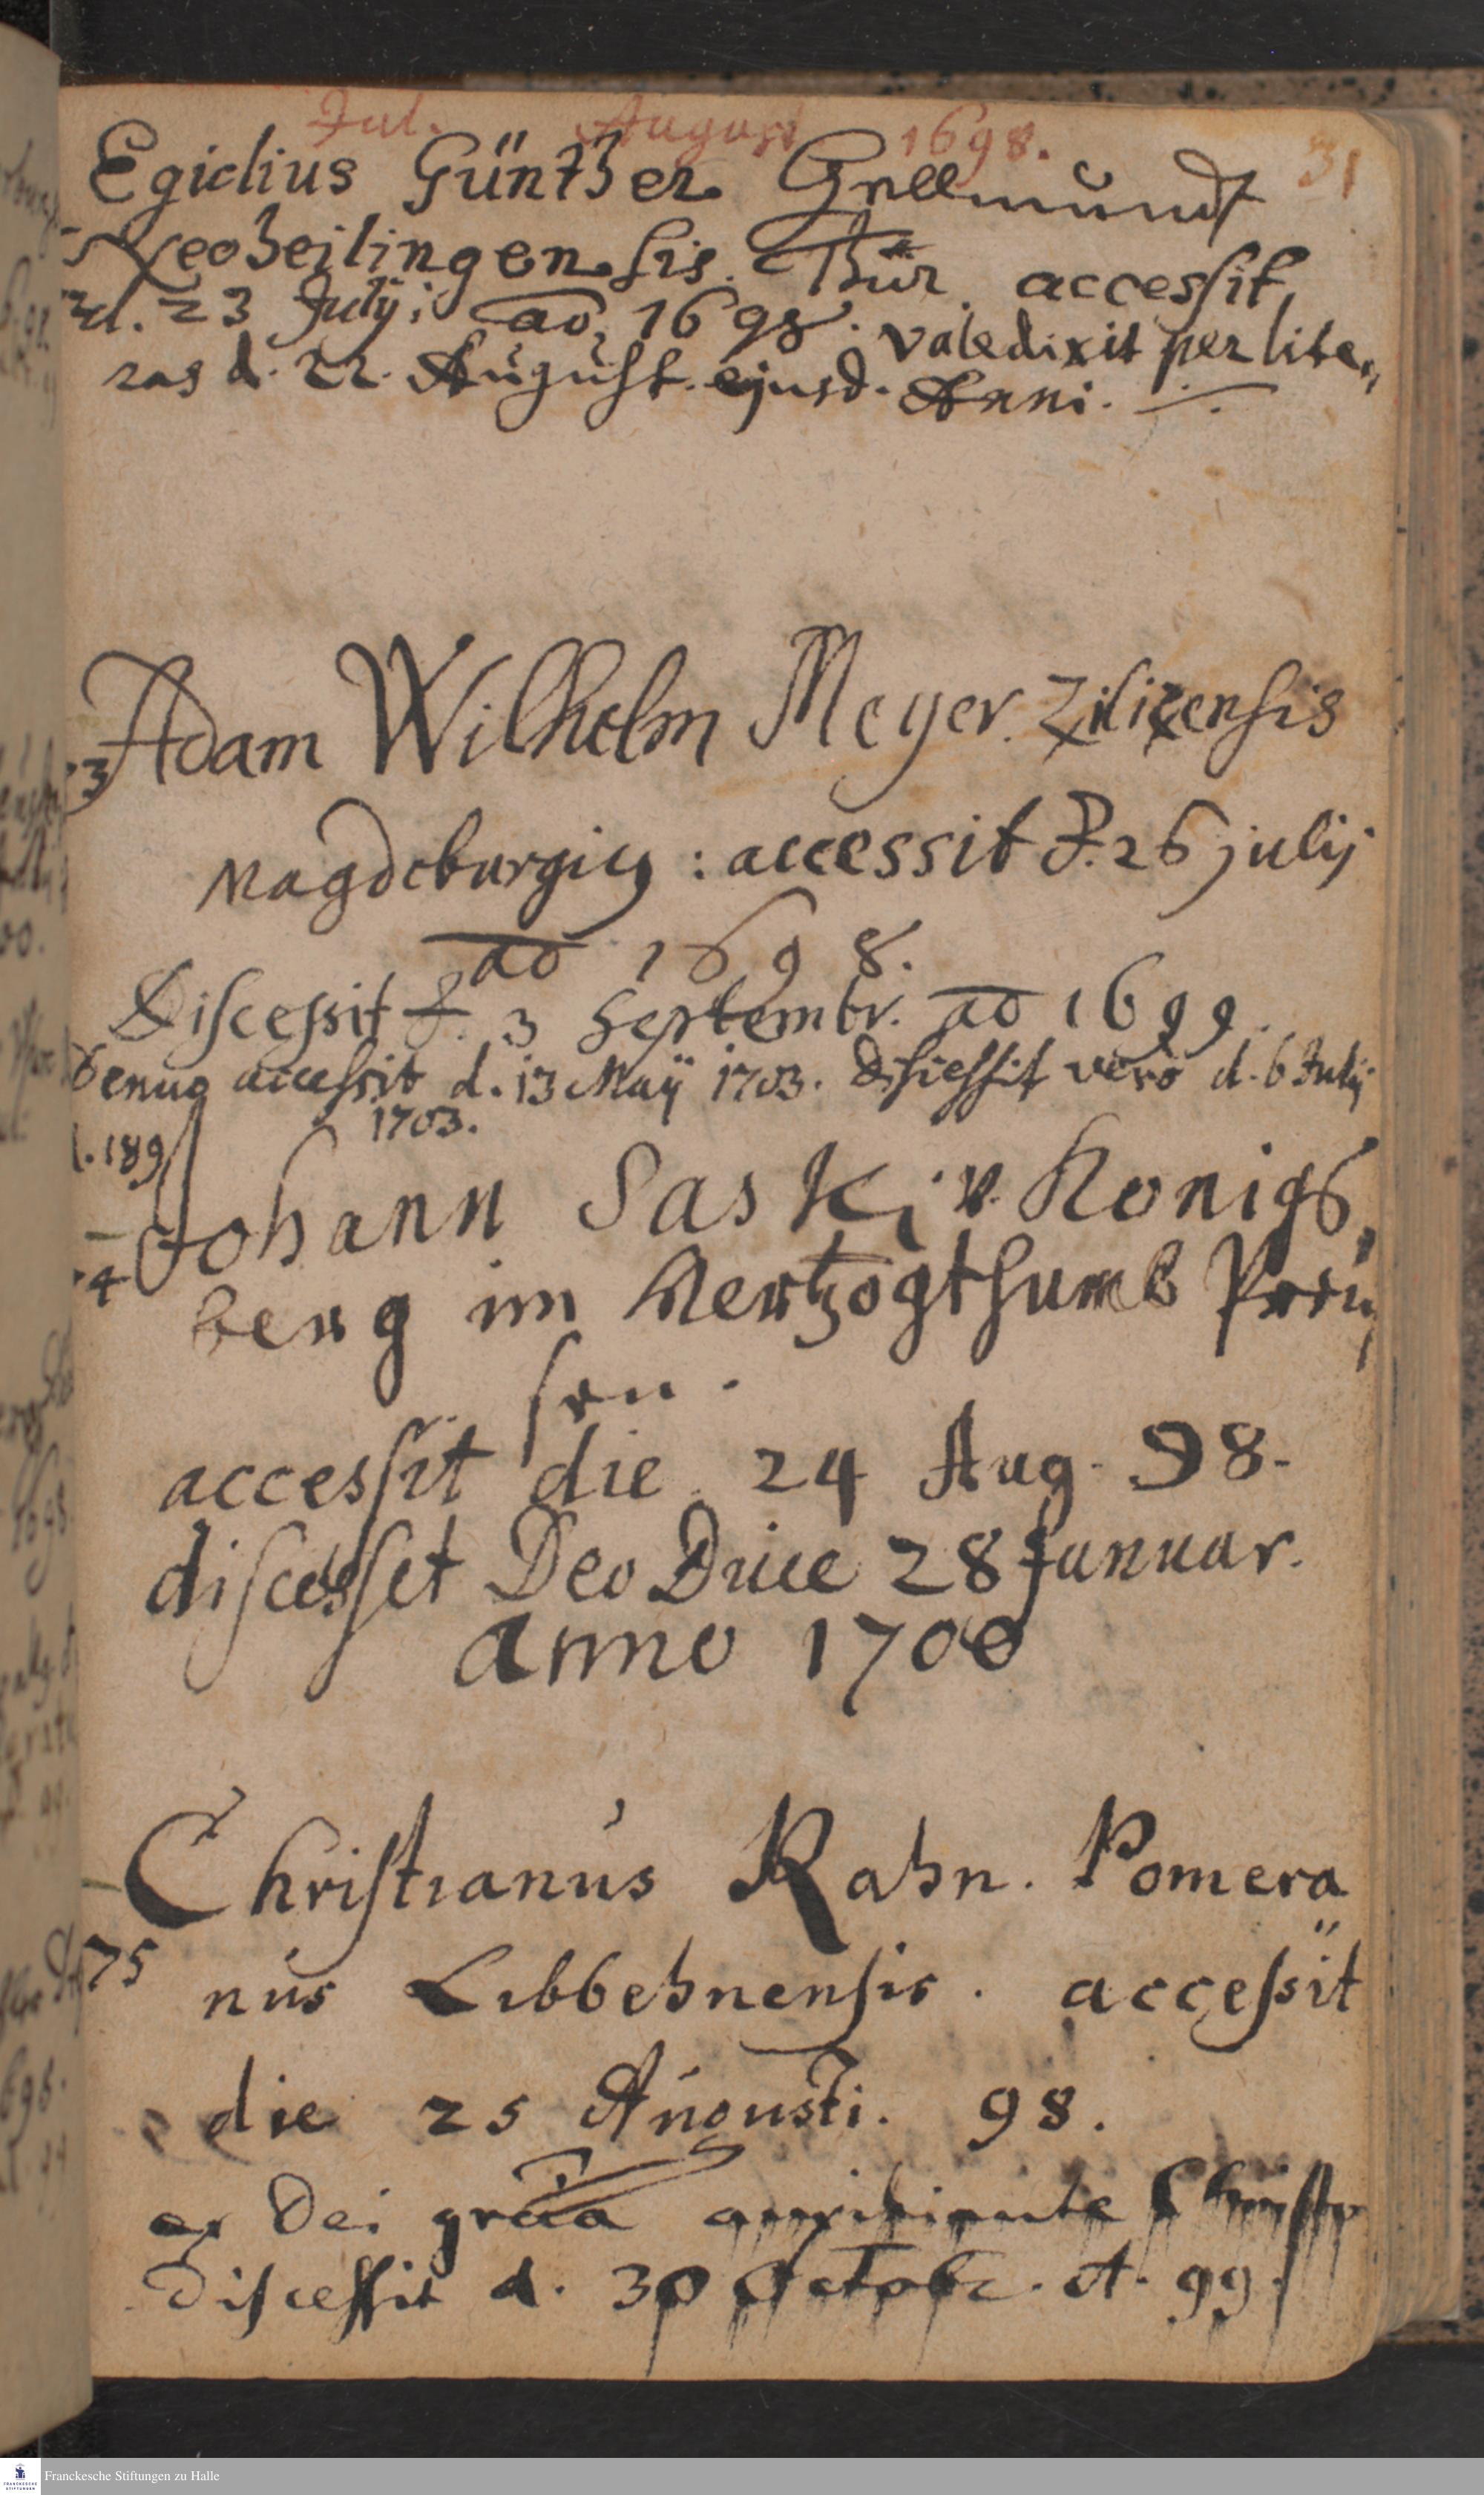 Jul. August 1698. 31
Egidius Günther Hellmundt
Neoheilingensis. Thür. accessit,
d. 23 Julij; ao, 1698. valedixit per lite„
ras d. 22. August. ejusd. Anni.
Adam Wilhelm Meyer. Zilizensis
3
Magdeburgicus : accessit d. 26 julij
ao 1698.
Discessit d. 3 Septembr. ao 1699.
Denuo accessit d. 13 Maij 1703. discessit vero d. 6 Julij
1703.
189
Johann Saski v. Konigs,
4
berg im Hertzogthumb Preu,
sen.
accessit die 24 Aug. 98.
discesset Deo Duce 28 Januar.
anno 1700
Christianus Rahn. Pomera
75 nus Libbehnensis. accessit
die 25 Augusti. 98.
ex Dei graa auxiliante Christo
discessit d. 30 Octobr. A. 99.
Franckesche Stiftungen zu Halle